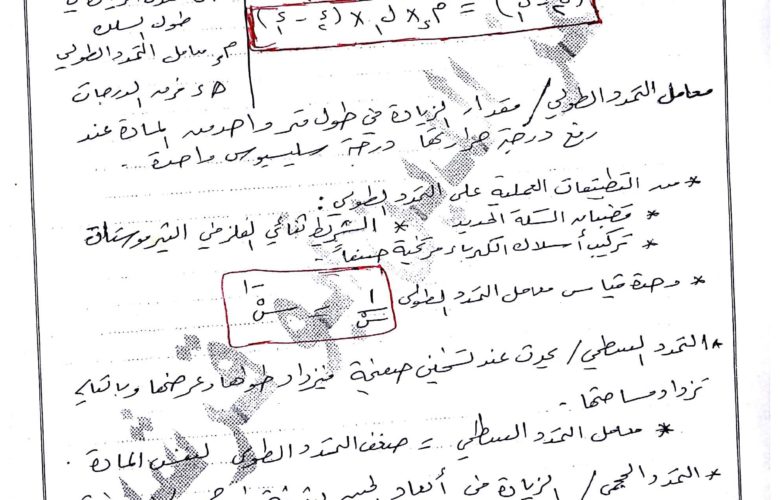 طول السلك
معامل التمدد الطولي
فرق الدرجات
معامل التمدد الطولي / مقدار الزيادة في طول متر واحد من المادة عند
رفع درجة حرارتها درجة سليسيوس واحدة .
* من التطبيقات العملية على التمدد الطولي :
* قضبان السكة الحديد * الشريط ثنائي الفلز في الثيرموستات
* تركيب أسلاك الكهرباء مرتخية صيفاً .
* وحدة قياس معامل التمدد الطولي ١/س° = س°⁻¹
التمدد السطحي / يحدث عند تسخين صفيحة فيزداد طولها وعرضها وبالتالي
تزداد مساحتها .
* معامل التمدد السطحي = ضعف التمدد الطولي لنفس المادة .
* التمدد الحجمي / الزيادة في أبعاد